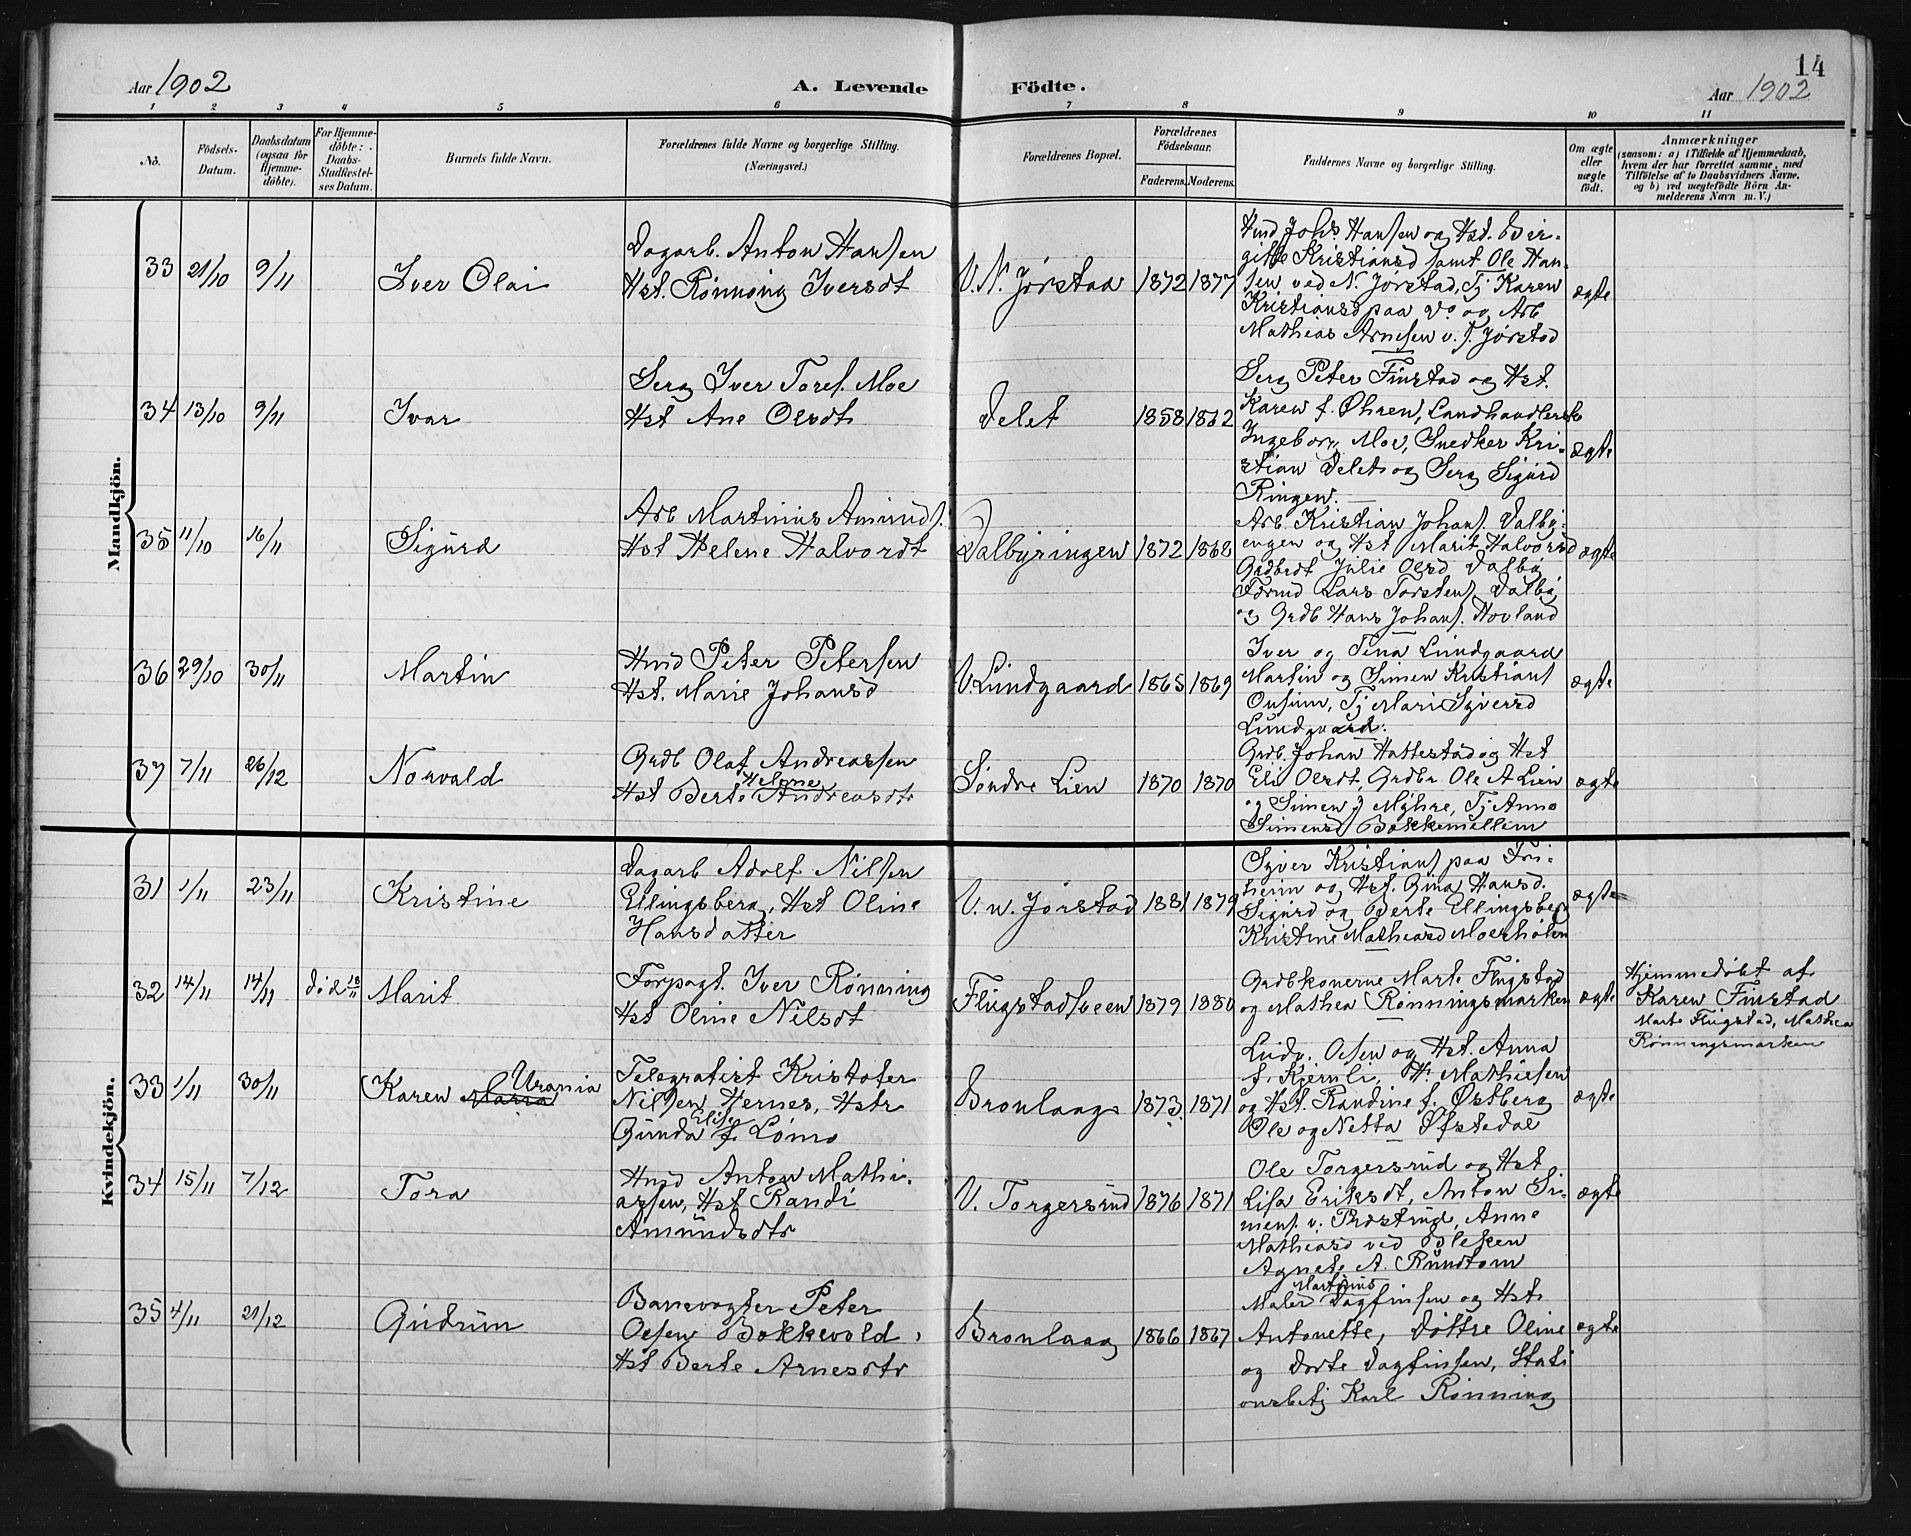 14
Aar 1902
A. Levende Födte.
Aar 1902
1 2 3 4 5 6 7 8 9 10 11
No.
Födsels-
Datum.
Daabsdatum
(ogsaa for
Hjemme-
döbte).
For Hjemme-
döbte:
Daabs-
Stadfæstel-
ses Datum.
Barnets fulde Navn.
Forældrenes fulde Navne og borgerlige Stilling.
(Næringsvei.)
Forældrenes Bopæl.
Forældrenes
Födselsaar.
Faderens. Moderens.
Faddernes Navne og borgerlige Stilling.
Om ægte
eller
uægte
födt.
Anmærkninger
(saasom: a) i Tilfælde af Hjemmedaab,
hvem der har forrettet samme, med
Tilföielse af to Daabsvidners Navne,
og b) ved uægtefödte Börn An-
melderens Navn m. V.)
Mandkjön.
33 21/10 9/11
Iver Olai
Dagarb. Anton Hansen
Hst. Rønnøug Iversdt
V. N. Jørstad
1872 1877
Hmd Johs. Hansen og Hst.
Kristiansd samt Ole Han-
sen ved N. Jørstad, Tj Karen
Kristiansd paa do og Arb
Mathias Arnesen v. S. Jørstad
ægte
34 13/10 9/11
Ivar
Serg Iver Tores. Moe
Hst Ane Olsdt
Delet
1858 1862
Serg Peter Finstad og Hst.
Karen f. Øhren, Landhandlerske
Ingeborg Moe, Snedker Kri-
stian Delet og Serg Sigurd
Ringen.
ægte
35 11/10 16/11
Sigurd
Arb Martinius Amunds.
Hst Helene Halvordt
Dalbyringen
1872 1868
Arb. Kristian Johans. Dalby-
engen og Hst Marit Halvorsd
Grdbrdt Julie Olsd Dalby
Formd Lars Torstens. Dalby
og Grdb Hans Johans. Hovland
ægte
36 29/10 30/11
Martin
Hmd Peter Petersen
Hst. Marie Johansd
V. Lundgaard
1865 1869
Iver og Tina Lundgaard
Martin og Simen Kristians
Onsum, Tj Mari Syversd
Lundgaard.
ægte
37 7/11 26/12
Norvald
Grdb Olaf Andreassen
Helene
Hst Berte Andreasdtr
Søndre Lien
1870 1870
Grdb. Johan Hattestad og Hst
Eli Olsdt, Grdbr Ole A Lien
og Simen J Myhre, Tj Anna
Simensd Bakkemellem
ægte
Kvindekjön.
31 1/11 23/11
Kristine
Dagarb Adolf Nilsen
Ellingsberg, Hst Oline
Hansdatter
V. N. Jørstad
1881 1879
Syver Kristians paa Fri-
heim og Hst. Gina Hansd.
Sigurd og Berte Ellingsberg
Kristine Mathiasd Moerholen
ægte
32 14/11 14/11 død 18/11
Marit
Forpagt. Iver Rønning
Hst Oline Nilsdt
Flugstadsveen
1879 1880
Grdbkonerne Marte Flugstad
og Mathea Rønningsmarken
ægte
Hjemmedøbt af
Karen Finstad
Marte Flugstad, Mathea
Rønningsmarken
33 1/11 30/11
Urania
Karen Maria
Telegrafist Kristofer
Nilsen Hernes, Hstr
Elise
Gunda f. Lømo
Bronlaag
1873 1871
Ludv. Olsen og Hst. Anna
f. Kjernli, H. Mathiesen
og Hst. Randine f. Østberg
Ole og Netta Øfstedal
ægte
34 15/11 7/12
Tora
Hmd Anton Mathi-
assen, Hst Randi
Amundsdtr
V. Torgersrud
1876 1871
Ole Torgersrud og Hst
Lisa Eriksdt, Anton Si-
mens. v. Præstrud, Anne
Mathiasd ved Bleken
Agnete A. Rundtom
ægte
35 4/11 21/12
Gudrun
Banevogter Peter
Olsen Bakkevold,
Hst Berte Arnesdtr
Bronlaag
1866 1867
Martinius
Maler Dagfinsen og Hst
Antonette, Døttre Oline
og Dorte Dagfinsen, Stati
onsbetj Karl Rønning
ægte